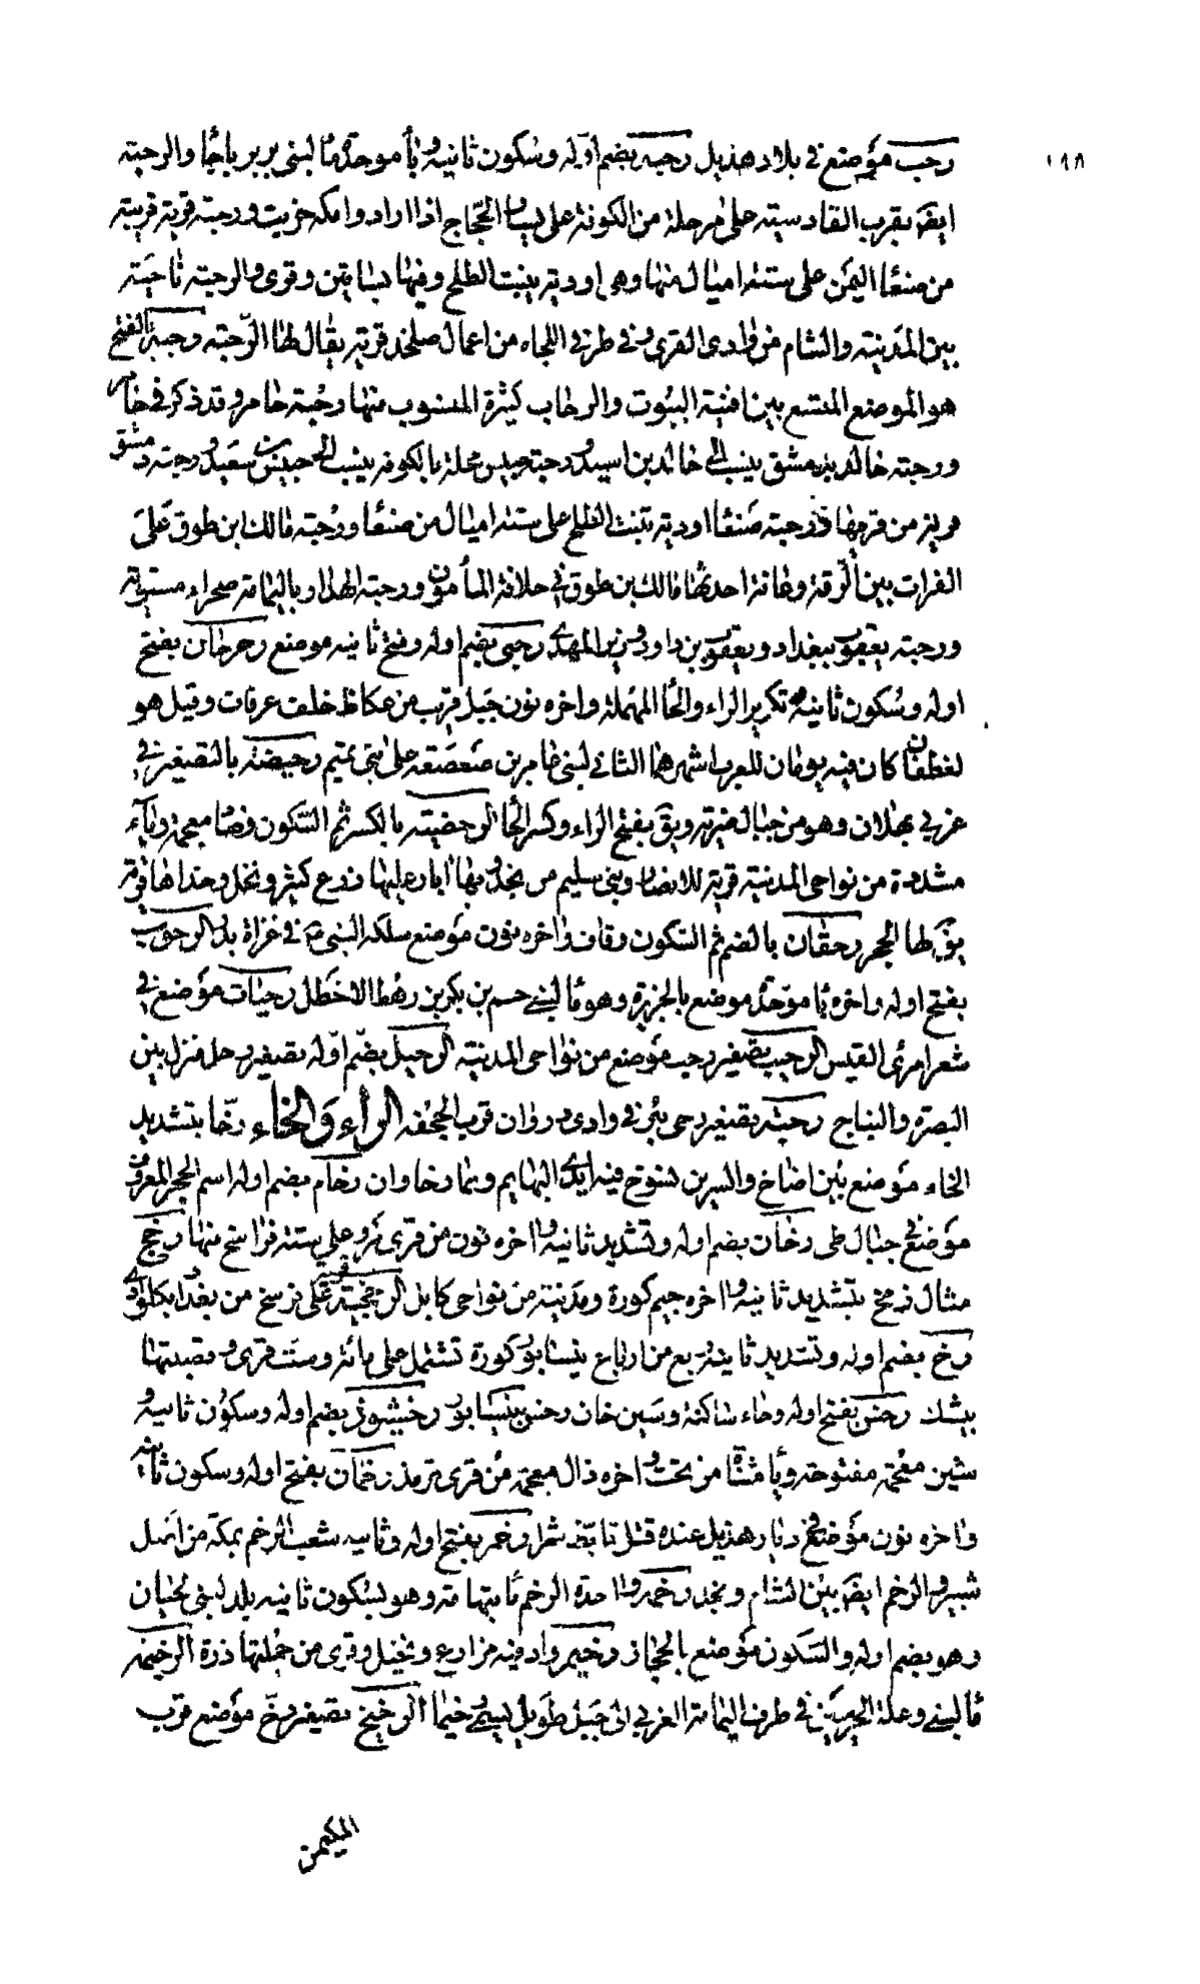 ١٩٨
رحب موضع في بلاد هذيل رحبه بضم اوله وسكون ثانيه وبأ موحدة مأ لبني برير باجأ والرحبته
ايضَ بقرب القادسيته على مرحلة من الكوفة على يسار الحجّاج اذا ارادوا مكه خربت ورحبته قرية قريبته
من صنعأ اليمن على ستته اميال منها وهي اوديته ينبت الطلح وفيها بساتين وقرى والرحبته ناحيَته
بين المدَينته والشام من وادى القرى وفي طرف اللجاه من اعمال صلخد قريته يقال لها الرّحبته ورحبة بالفتح
هو الموضع المتسع بين افنية البيُوت والرحاب كيثرة المنسوب منها رحُبته خامر وقد ذكر في خامر
ورحبته خالد بدمشق ينسب الى خالد بن اسيد ورحبته خنيس محلة بالكوفه ينسب الى خنيس بن سعَيد ورحبته دمشق
قريته من قرحها ورحبته صَنعأ اوديته تنبت الطلح على ستته اميال من صنعأ ورحُبته مالك ابن طوق عَلىَ
الفرات بين الرّقة وعانة احدثها مالك بن طوق في خلافة المأمون ورحبته الهدار باليمامته صحراء مستويته
ورحبته يعقوب ببغداد ويعقوب بن داود وزير المهدى رحبى بضم اوله وفتح ثانيه موضع رحرحان بفتح
اوله وسُكون ثانيه وتكرير الراء والحأ المهملة واخره نون جَبل قريب من عكاظ خلف عرفات وقيل هو
لغطفان كان فيه يومان للعرب اشهرهما الثاني لبني عامر بن صَعصَعته على بنى تميم رحيضته بالتصغير في
غربي ثهلان وهو من جبال ضريته ويقَ بفتح الراء وكسر الحأ الرحضيته بالكسر ثم السّكون وضأ معجمة وياء
مشددة من نواحى المدينته قريته للانصار وبني سليم من نجد وبها ابار عليها زرع كثير ونخل وحذاها قريته
يقَ لها الحجر رحقان بالضم ثم السكون وقاف واخره نون موَضع سلكه النبي صم في غزاة بدر الرحوب
بفتح اوله واخره بأ موّحدة موضع بالجزيرة وهو مأ لبني جشم بن بكر من رهط الاخطل رحيّات موَضع في
شعر امرئ القيس الرحيب تصَغير رحب موَضع من نواحى المدينته الرحيل بضّم اوّله تصغير رحل منزل بين
البصرة والنباج رحيته تصغير رحى بئر في وادى دوران قرب الجحُفه الراء وَالخاء رخّا بتشديد
الخاء موَضع بين اضاخ والسرين تسوخ فيه ايدى البهايم وهما رخاوان رخام بضم اوله اسم الحجر المعروف
موَضع في جبال طى رخّان بضم اوله وتشديد ثانيه واخره نون من قرى مَرو على ستته فراسخ منها رخّج
مثال زمخ بتشديد ثانيه واخره جيم كورة ومَدينة من نواحى كابل الرخجيته قرية على فرسخ من بغداد بكلواذى
رخ بضم اوله وتشديد ثانيه ربع من ارباع نيسابور كورة تشتمل على مائة وست قرى وقصبتها
بيشك رخش بفتح اوله وخاء ساكنة وسَين خان رخش بنيسابور رخشيوذ بضم اوله وسكوُن ثانيه و
شين معجمة مفتوحة ويأ مثناة من تحت واخره ذال معجمة من قرى ترمذ رخمان بفتح اوله وسكون ثانيه
واخره نون موَضع في ديار هذيل عنده قتل تابّط شرا رخم بفتح اوله وثانيه شعب الرخم بمكة من اصل
ثبير والرخم ايضَ بين الشام ونجد رخمه واحدة الرخم مأ بتهامته وهو بسُكون ثانيه بلد لبني لحيان
رهو بضم اوله والسكون موَضع بالحجاز رخيم واد فيه مزارع ونخيل وقرى من جملتها ذرة الرخيمه
مأ لبني وعلة الجرميّين في طرف اليمامة الغربي الى جَبل طَويل يسمى خيما الرخيخ تصغير رخّ موَضع قرب
المكيمن